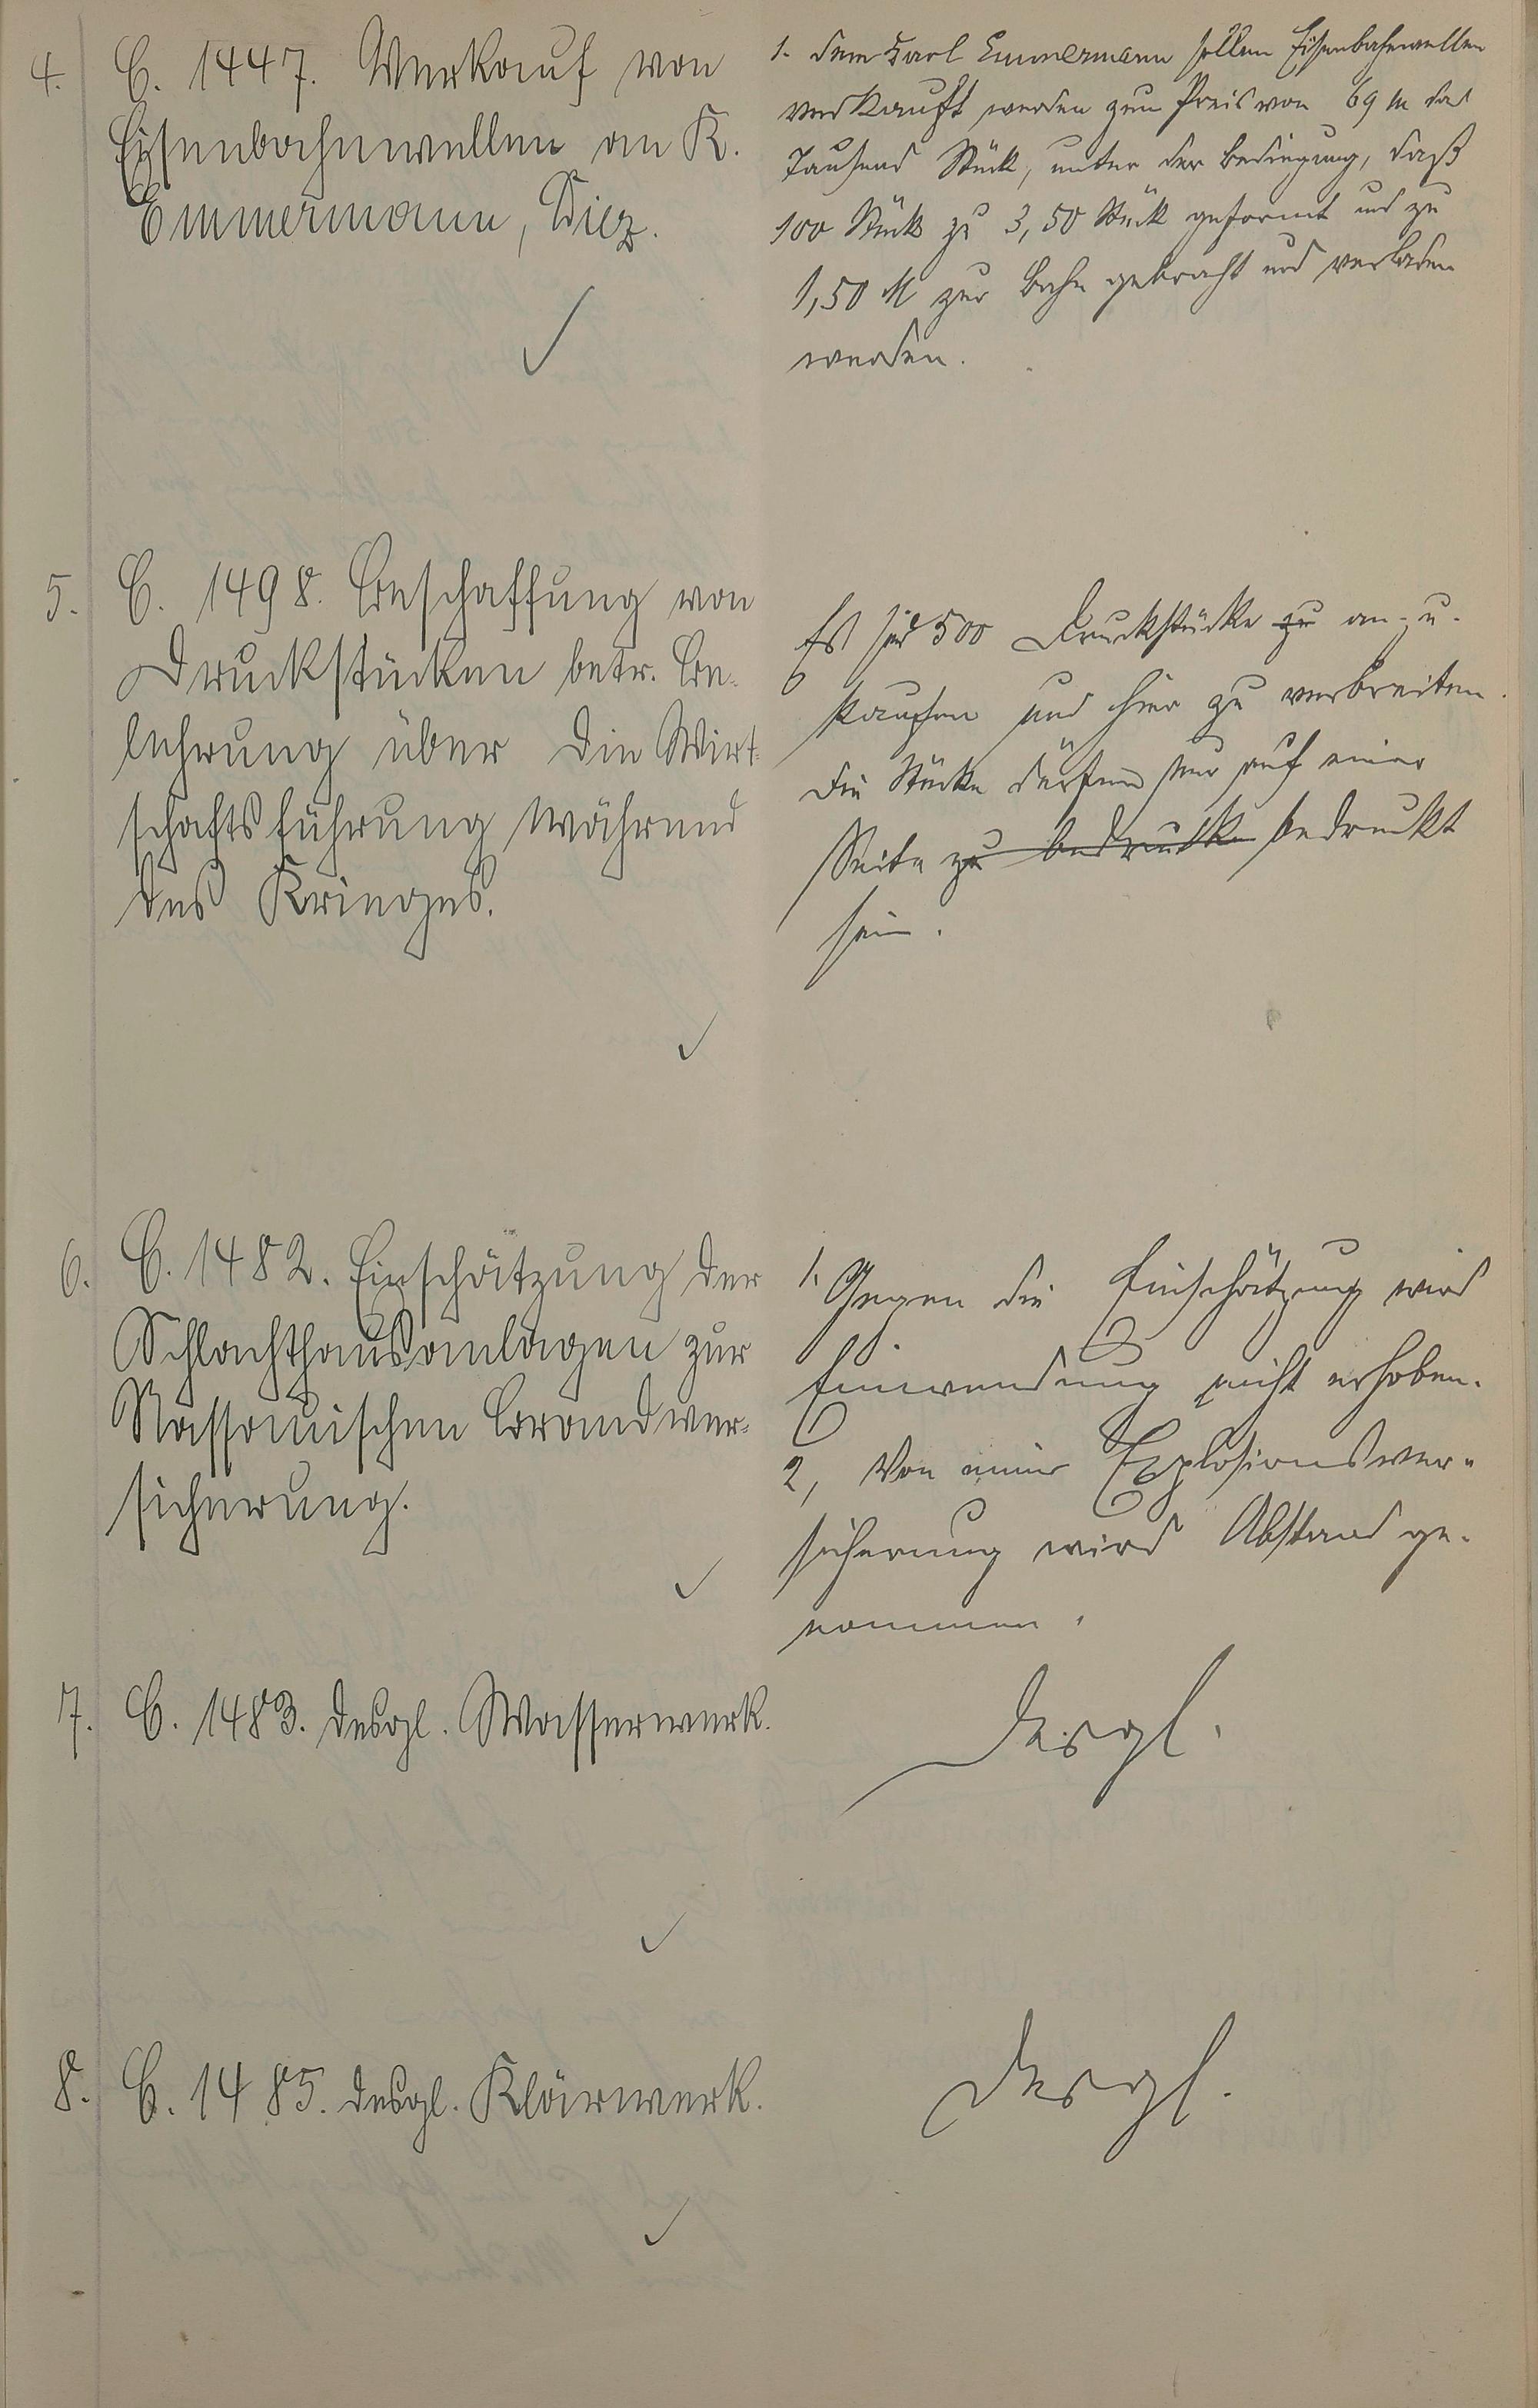 4. C. 1447. Verkauf von
Eisenbahnwellen an K.
Emmermann, Diez.
1. Dem Karl Emmermann sollen Eisenbahnwellen
verkauft werden zum Preis von 69 M das
Tausend Stück, unter der Bedingung, daß
100 Stück zu 3,50 Stück geformt und zu
1,50 M zur Bahn gebracht und verladen
werden.
5. C. 1498. Beschaffung von
Druckstücken betr. Be-
lehrung über die Wirt-
schaftsführung während
des Krieges.
Es sind 500 Druckstücke zu anzu-
kaufen und hier zu verbreiten.
Die Stücke dürfen nur auf einer
Seite zu bedrucken bedruckt
sein.
6. C. 1482. Einschätzung der
Schlachthausanlagen zur
Nassauischen Brandver-
sicherung.
1. Gegen die Einschätzung wird
Einwendung nicht erhoben.
2, Von einer Explosionsver-
sicherung wird Abstand ge-
nommen.
7. C. 1483. desgl. Wasserwerk.
Desgl.
8. C. 1485. desgl. Klärwerk.
Desgl.